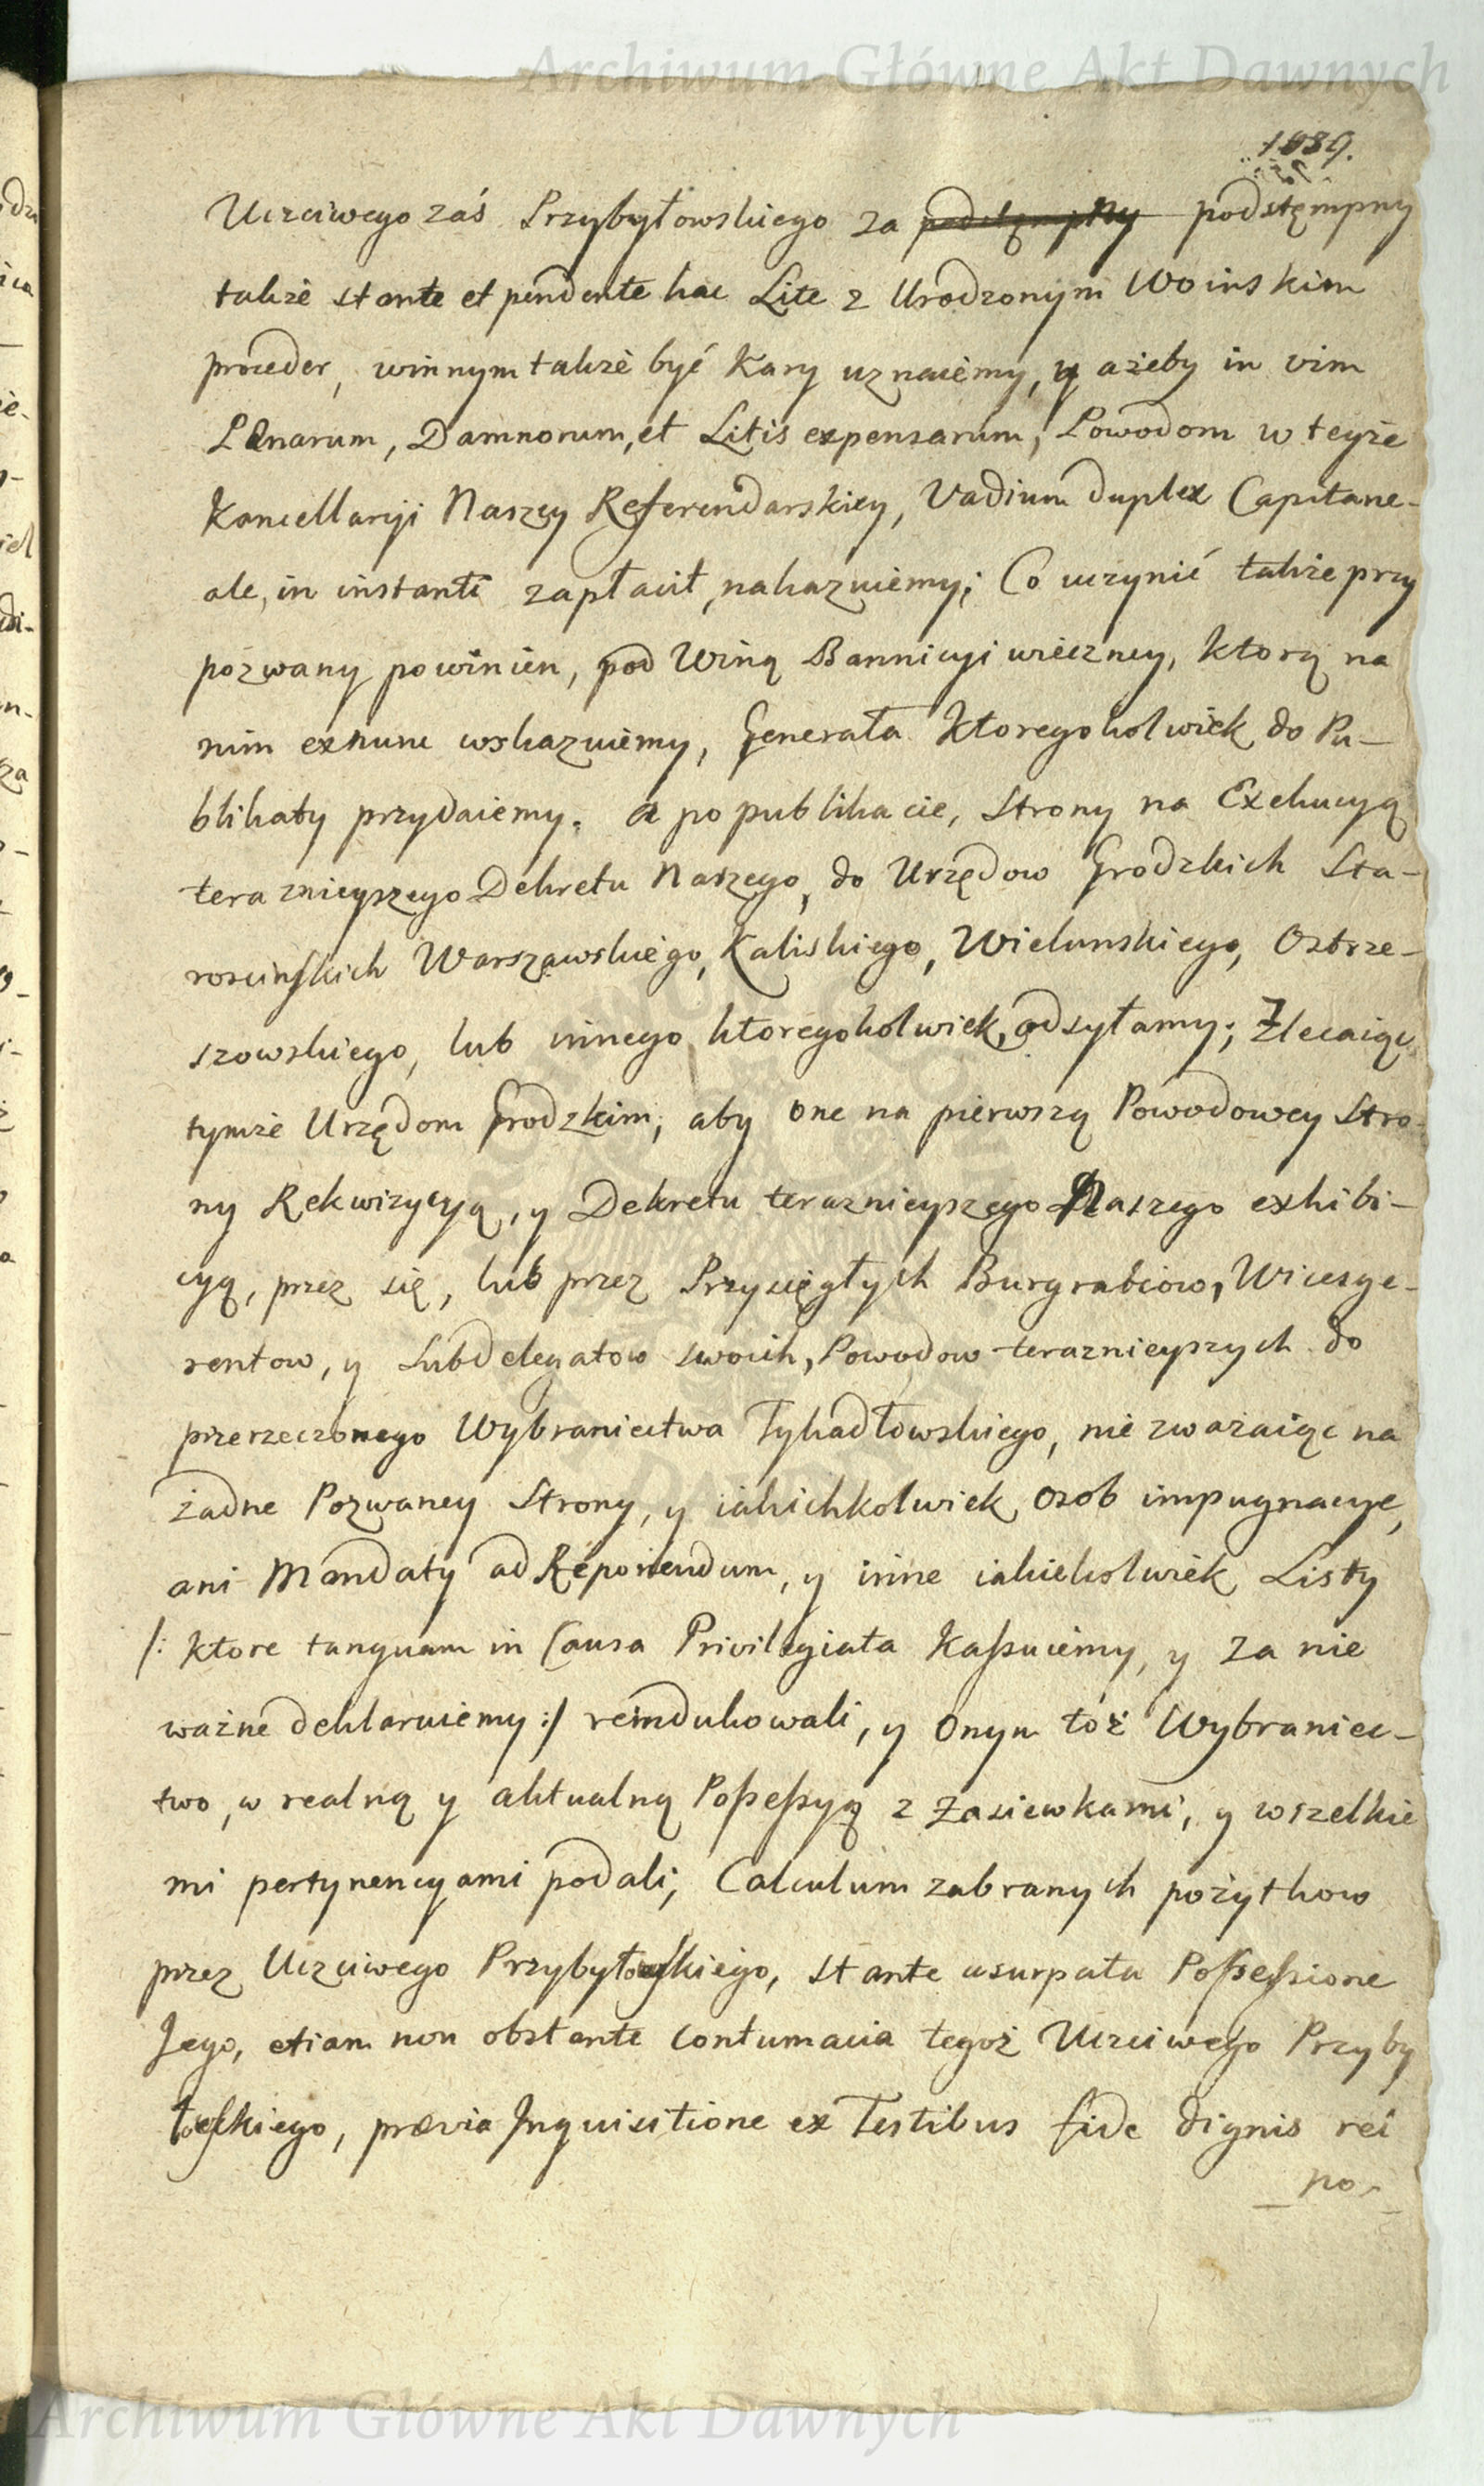 Archiwum Główne Akt Dawnych
1089.
Uczciwego zaś Przybyłowskiego za podstęmpny podstęmpny
takze stante et pendente hac Lite z Urodzonym Woinskim
proceder, winnym takze być Kary uznaiemy, y ażeby in vim
Pænarum, Damnorum, et Litis expensarum, Powodom w teyże
Kancellaryi Naszey Referendarskiey, Vadium duplex Capitane-
ale, in instanti zapłacił, nakazuiemy; Co uczynić takze przy
pozwany powinien, pod Winą Bannicyi wieczney, ktorą na
nim exnunc wskazuiemy, Generała ktoregokolwiek do Pu-
blikaty przydaiemy. a po publikacie, Strony na Exekucyą
teraznieyszego Dekretu Naszego, do Urzędow Grodzkich Sta-
roscinskich Warszawskiego, Kaliskiego, Wielunskiego, Ostrze-
szowskiego, lub innego ktoregokolwiek, odsyłamy; Zlecaiąc
tymże Urzędom Grodzkim, aby one na pierwszą Powodowey Stro-
ny Rekwizycyą, y Dekretu teraznieyszego Naszego exhibi-
cyą, przez się, lub przez Przysięgłych Burgrabiow, Wicesge-
rentow, y Subdelegatow swoich, Powodow teraznieyszych do
przerzeczonego Wybraniectwa Tykadłowskiego, nie zwazaiąc na
żadne Pozwaney Strony, y iakichkolwiek osob impugnacye,
ani Mandaty ad Reponendum, y inne iakiekolwiek Listy
/: ktore tanquam in Causa Privilegiata Kassuiemy, y za nie
ważne deklaruiemy :/ reindukowali, y onym toż Wybraniec-
two, w realną y aktualną Possessyą z Zasiewkami, y wszelkie
mi pertynencyami podali; Calculum zabranych pożytkow
przez Uczciwego Przybyłowskiego, stante usurpata Possessione
Jego, etiam non obstante contumacia tegoż Uczciwego Przyby
łoskiego, prævia Inquisitione ex Testibus fide dignis rei
_ no._
Archiwum Główne Akt Dawnych